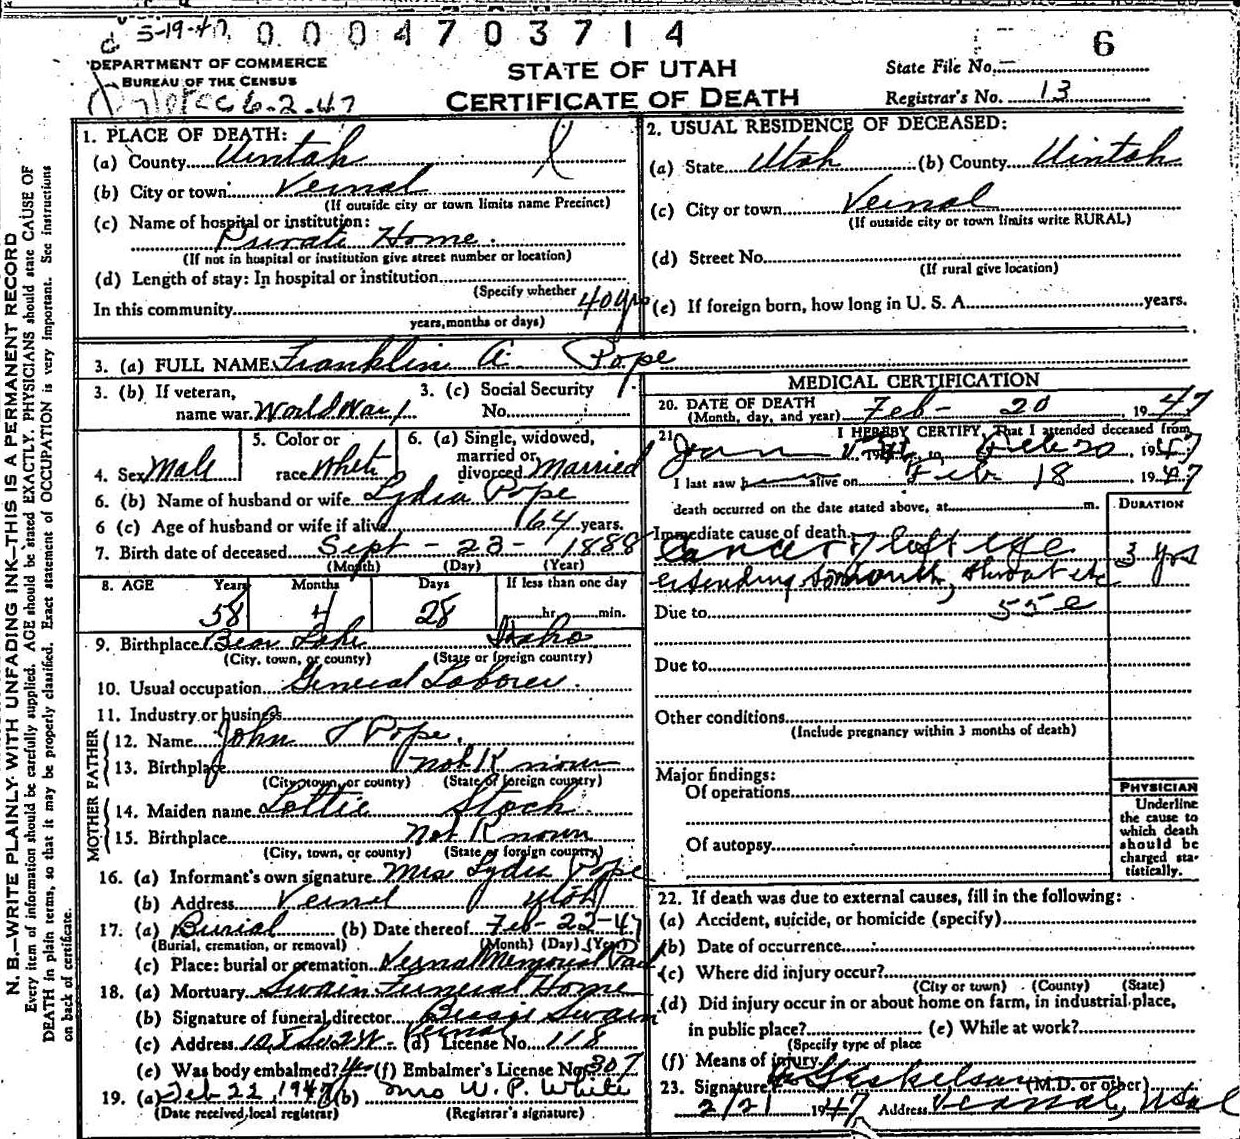 5-19-47 0004703714 6
DEPARTMENT OF COMMERCE
BUREAU OF THE CENSUS
6-2-47
STATE OF UTAH
CERTIFICATE OF DEATH
State File No.
Registrar's No. 13
N. B.—WRITE PLAINLY WITH UNFADING INK—THIS IS A PERMANENT RECORD
Every item of information should be carefully supplied. AGE should be stated EXACTLY. PHYSICIANS should state CAUSE OF
DEATH in plain terms, so that it may be properly classified. Exact statement of OCCUPATION is very important. See instructions
on back of certificate.
1. PLACE OF DEATH:
(a) County Uintah
(b) City or town Vernal
(If outside city or town limits name Precinct)
(c) Name of hospital or institution:
Private Home.
(If not in hospital or institution give street number or location)
(d) Length of stay: In hospital or institution
(Specify whether
In this community 40 yrs
years, months or days)
2. USUAL RESIDENCE OF DECEASED:
(a) State Utah (b) County Uintah
(c) City or town Vernal
(If outside city or town limits write RURAL)
(d) Street No.
(If rural give location)
(e) If foreign born, how long in U. S. A. years.
3. (a) FULL NAME Franklin A. Pope
3. (b) If veteran,
name war World War 1
3. (c) Social Security
No.
4. Sex Male
5. Color or
race White
6. (a) Single, widowed,
married or
divorced Married
6. (b) Name of husband or wife Lydia Pope
6 (c) Age of husband or wife if alive 64 years.
7. Birth date of deceased Sept - 23 - 1888
(Month) (Day) (Year)
8. AGE Years Months Days If less than one day
58 4 28 hr. min.
9. Birthplace Bear Lake Idaho
(City, town, or county) (State or foreign country)
10. Usual occupation General Laborer.
11. Industry or business
FATHER
12. Name John T Pope.
13. Birthplace not Known
(City, town, or county) (State or foreign country)
MOTHER
14. Maiden name Lottie Stock
15. Birthplace Not Known
(City, town, or county) (State or foreign country)
16. (a) Informant's own signature Mrs Lydia Pope
(b) Address Vernal Utah
17. (a) Burial (b) Date thereof Feb-22-47
(Burial, cremation, or removal) (Month) (Day) (Year)
(c) Place: burial or cremation Vernal Memorial Park
18. (a) Mortuary Swain Funeral Home
(b) Signature of funeral director Bessie Swain
(c) Address Vernal (d) License No. 118
(e) Was body embalmed? (f) Embalmer's License No. 307
19. (a) Feb 22, 1947 (b) Mrs W. P. White
(Date received, local registrar) (Registrar's signature)
MEDICAL CERTIFICATION
20. DATE OF DEATH
(Month, day, and year) Feb- 20 1947
21. I HEREBY CERTIFY, That I attended deceased from
Jan to Feb 20 1947
I last saw him alive on Feb 18 1947
death occurred on the date stated above, at m.
DURATION
Immediate cause of death
Cancer of left eye 3 yrs
extending to mouth, throat etc
Due to 55e
Due to
Other conditions
(Include pregnancy within 3 months of death)
Major findings:
Of operations
Of autopsy
PHYSICIAN
Underline
the cause to
which death
should be
charged sta-
tistically.
22. If death was due to external causes, fill in the following:
(a) Accident, suicide, or homicide (specify)
(b) Date of occurrence
(c) Where did injury occur?
(City or town) (County) (State)
(d) Did injury occur in or about home on farm, in industrial place,
in public place? (e) While at work?
(Specify type of place
(f) Means of injury
23. Signature (M.D. or other)
2/21 1947 Address Vernal, Utah